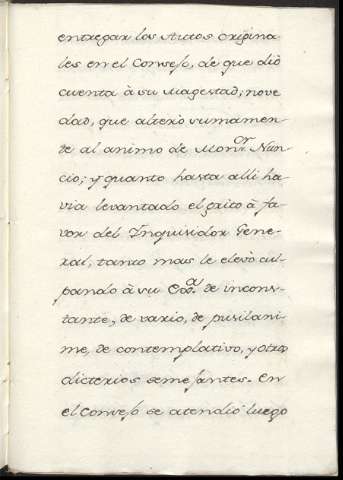 entregar los Autos origina-
les en el Consejo, de que dió
cuenta à su Magestad; nove
dad, que alterò sumamen-
te al animo de Mon.r Nun-
cio; y quanto hasta alli ha-
via levantado el grito à fa-
vor del Inquisidor Gene-
ral, tanto mas le elevo cul-
pando à su de incons-
tante, de vario, de pusilani-
me, de contemplativo, y otros
dicterios semejantes. En
el Consejo se atendió luego